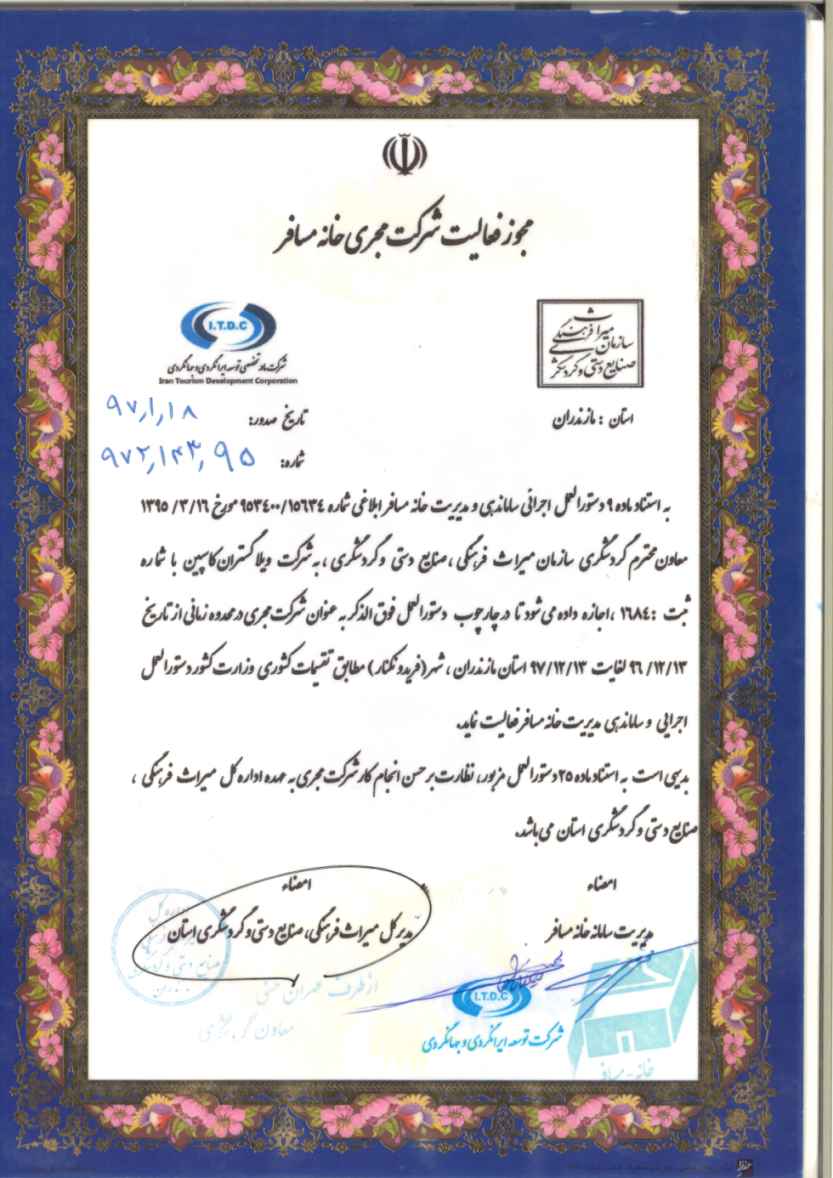 مجوز فعالیت شرکت مجری خانه مسافر
I.T.D.C
شرکت مادر تخصصی توسعه ایرانگردی و جهانگردی
Iran Tourism Development Corporation
سازمان میراث فرهنگی
صنایع دستی و گردشگری
استان : مازندران
تاریخ صدور: ۹۷/۱/۱۸
شماره: ۹۷۲/۱۴۳/۹۵
به استناد ماده ۹ دستورالعمل اجرائی ساماندهی و مدیریت خانه مسافر ابلاغی شماره ۹۵۳۴۰۰/۱۵۶۳۴ مورخ ۱۳۹۵/۳/۱۶
معاون محترم گردشگری سازمان میراث فرهنگی ، صنایع دستی و گردشگری ، به شرکت ویلا گستران کاسپین با شماره
ثبت : ۱۶۸۴ ، اجازه داده می شود تا در چارچوب دستورالعمل فوق الذکر به عنوان شرکت مجری در محدوده زمانی از تاریخ
۹۶/۱۲/۱۳ لغایت ۹۷/۱۲/۱۳ استان مازندران ، شهر (فریدونکنار) مطابق تقسیمات کشوری وزارت کشور دستورالعمل
اجرایی و ساماندهی مدیریت خانه مسافر فعالیت نماید.
بدیهی است به استناد ماده ۲۵ دستورالعمل مزبور، نظارت بر حسن انجام کار شرکت مجری به عهده اداره کل میراث فرهنگی ،
صنایع دستی و گردشگری استان می باشد.
امضاء
مدیریت سامانه خانه مسافر
امضاء
مدیر کل میراث فرهنگی، صنایع دستی و گردشگری استان
از طرف
معاون
I.T.D.C
شرکت توسعه ایرانگردی و جهانگردی
خانه - مسافر